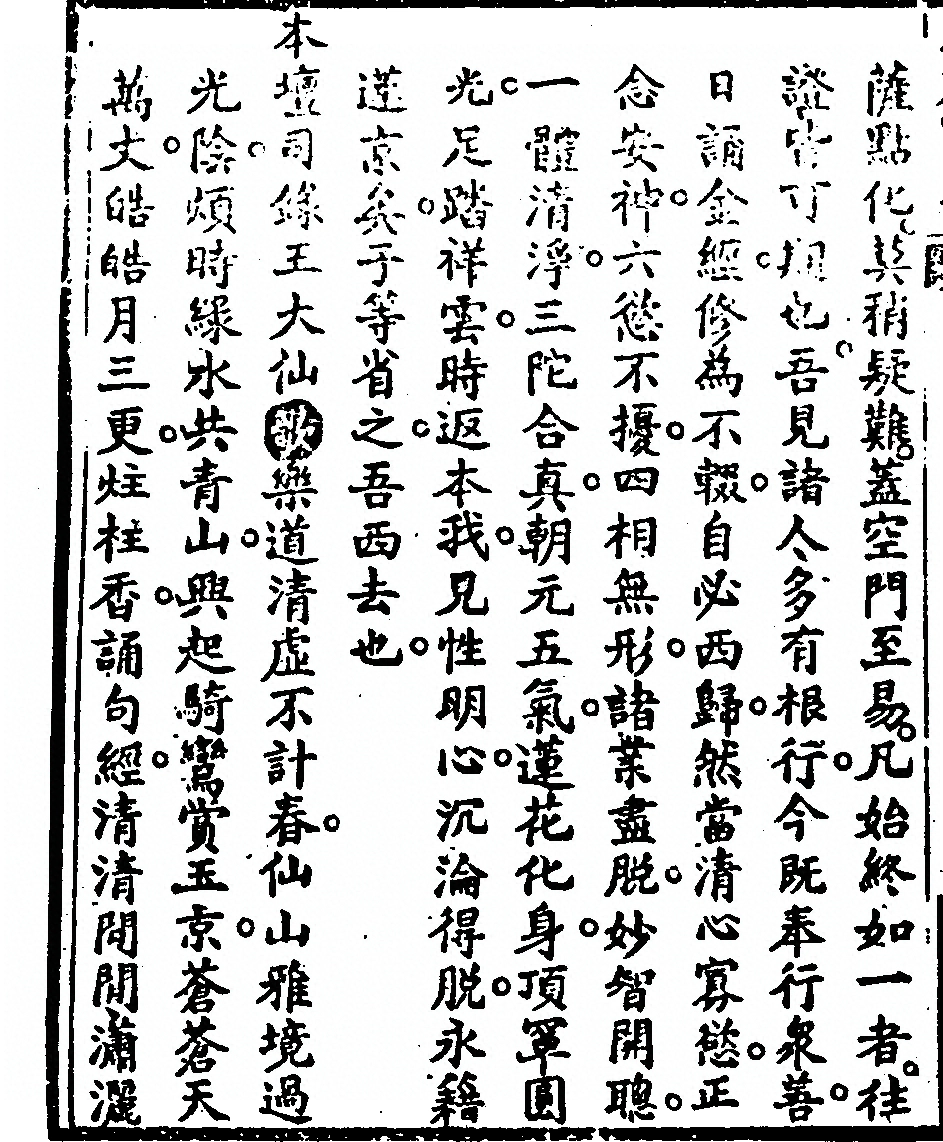 薩點化莫稍疑難。蓋空門至易。凡始終如一者。往
證皆可期也。吾見諸人多有根行。今既奉行衆善。
日誦金經。修為不輟。自必西歸。然當清心寡慾。正
念安神。六慾不擾。四相無形。諸業盡脫。妙智開聰。
一體清淨。三陀合真。朝元五氣。蓮花化身。頂罩圓
光。足踏祥雲。時返本我。見性明心。沉淪得脫。永籍
蓮京矣。于等省之。吾西去也。
本壇司錄王大仙歌樂道清虛不計春。仙山雅境過
光陰。煩時綠水共青山。興起騎鸞賞玉京。蒼蒼天
萬丈。皓皓月三更。炷柱香。誦句經。清清閒閒瀟灑